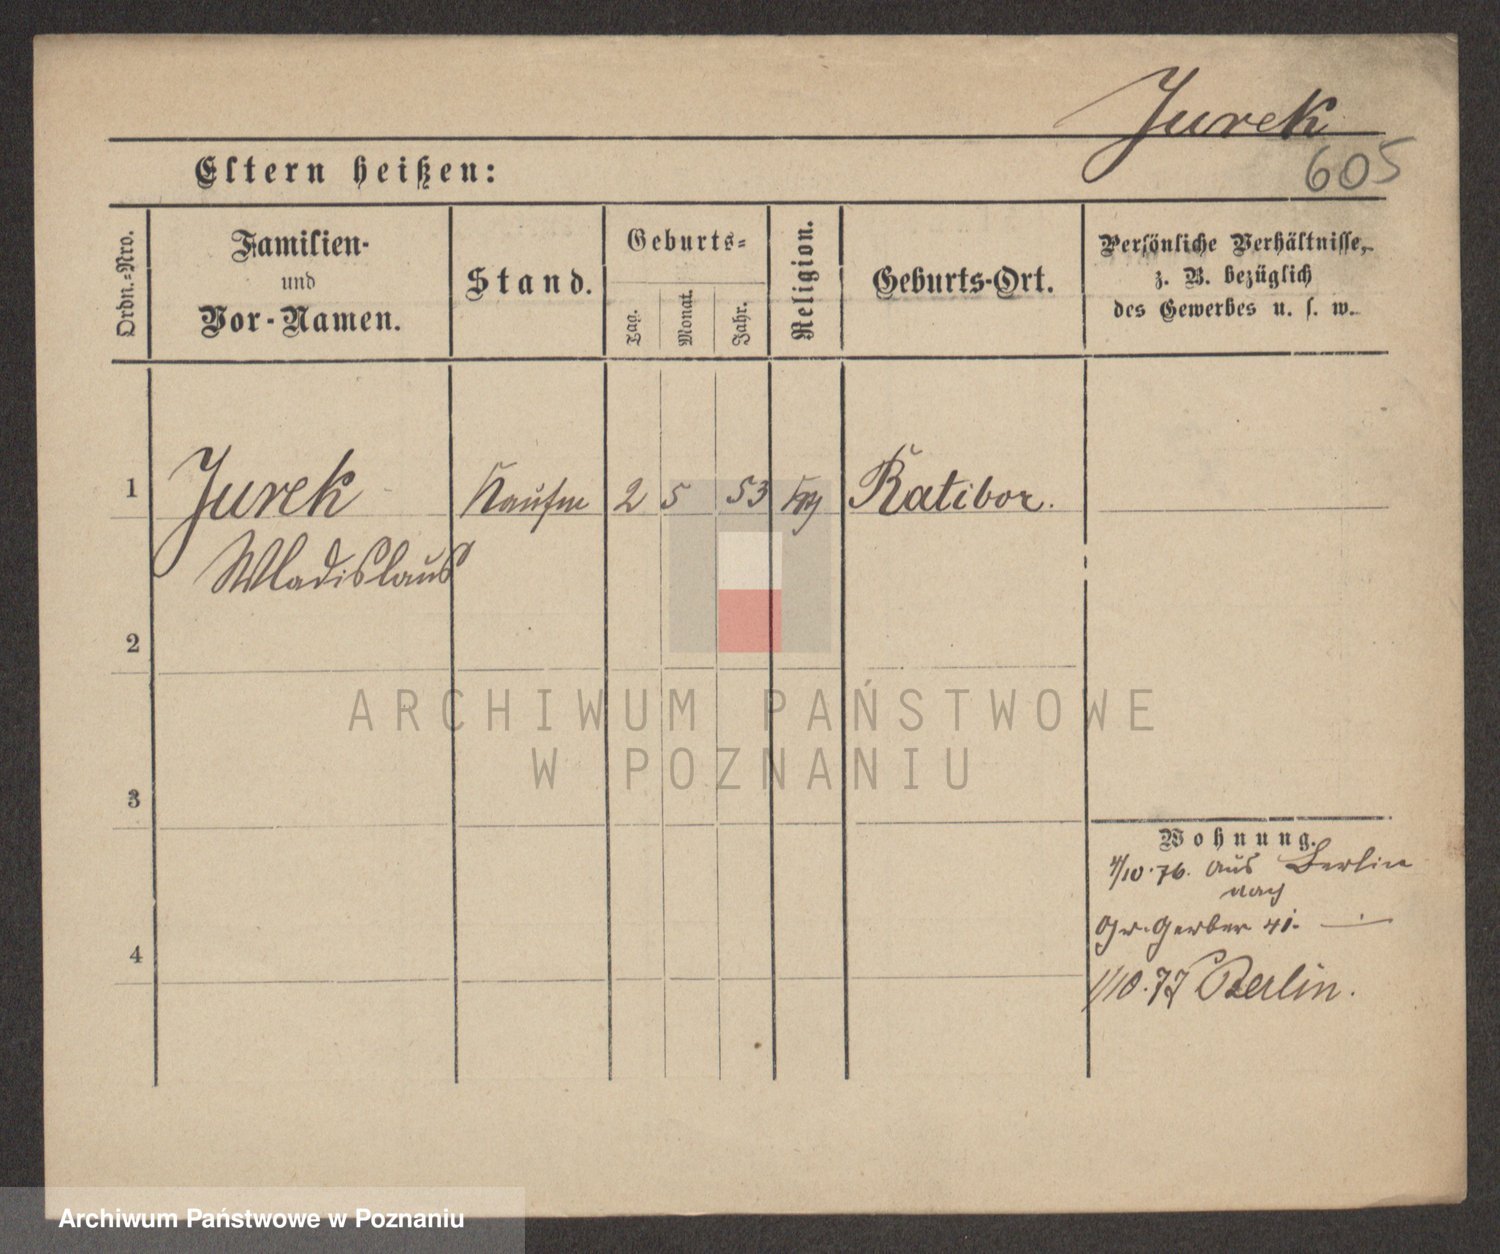 Jurek
605
Eltern heißen:
Ordn.-Nro.
Familien-
und
Vor-Namen.
Stand.
Geburts-
Tag.
Monat.
Jahr.
Religion.
Geburts-Ort.
Persönliche Verhältnisse,
z. B. bezüglich
des Gewerbes u. s. w.
1 Jurek Kaufm 2 5 53 Ratibor.
Wladislaus
2
3
4
Wohnung.
4/10.76. aus Berlin
nach
Gr. Gerber 41.
1/10.77 Berlin.
ARCHIWUM PAŃSTWOWE
W POZNANIU
Archiwum Państwowe w Poznaniu